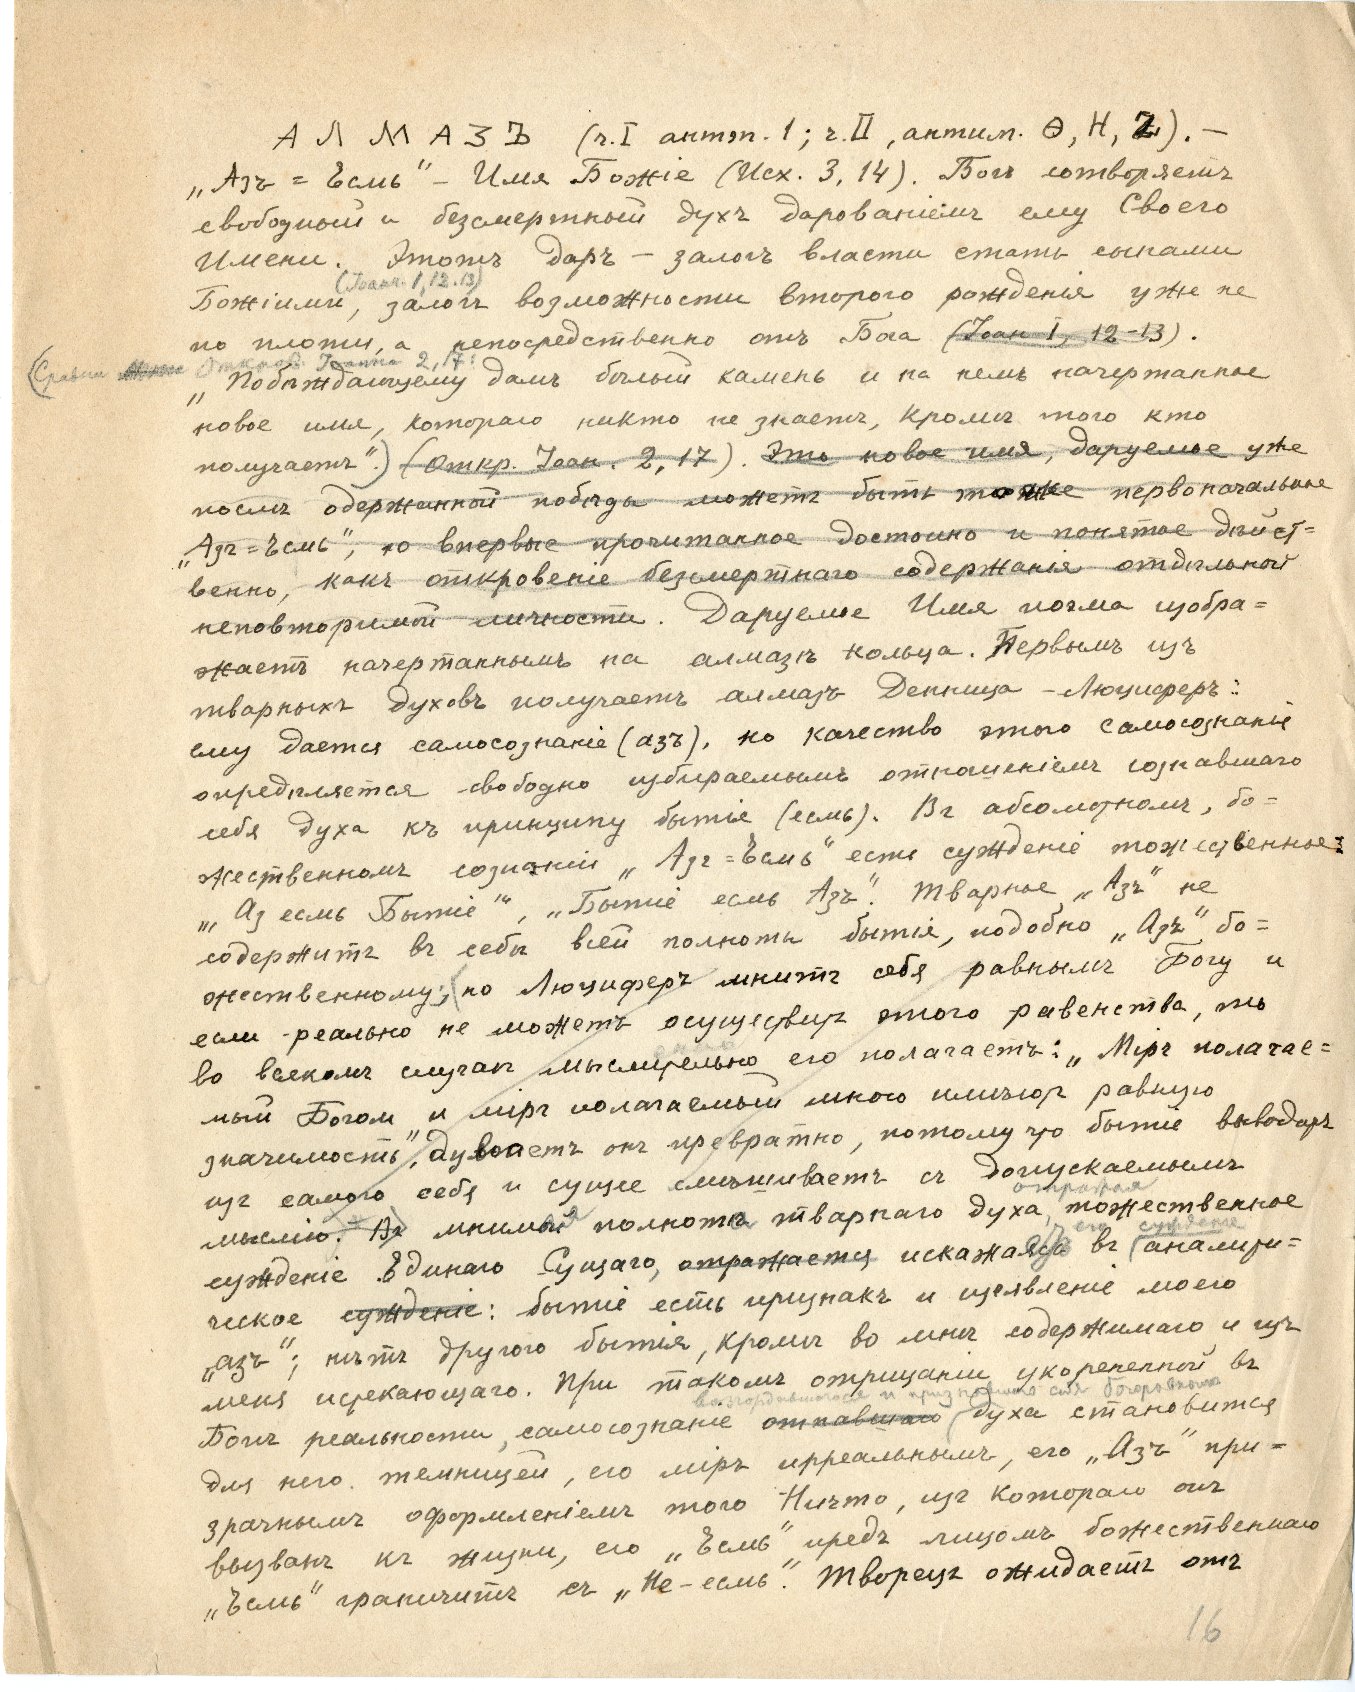 АЛМАЗЪ (ч. I антэп. 1; ч. II, антим. Ѳ, Н, Ъ). —
„Азъ = Есмь“ — Имя Божіе (Исх. 3, 14). Богъ сотворяетъ
свободный и безсмертный духъ дарованіемъ ему Своего
Имени. Этотъ даръ — залогъ власти стать сынами
(Іоанн. 1, 12.13)
Божіими, залогъ возможности второго рожденія уже не
по плоти, а непосредственно отъ Бога (Іоан. I, 12-13).
(Сравни Откров. Іоанна 2, 17:
„Побѣждающему дамъ бѣлый камень и на немъ начертанное
новое имя, котораго никто не знаетъ, кромѣ того кто
получаетъ“.) (Откр. Іоан. 2, 17). Это новое имя, даруемое уже
послѣ одержанной побѣды можетъ быть тоже первоначальное
„Азъ = Есмь“, но впервые прочитанное достойно и понятое дѣйст=
венно, какъ откровеніе безсмертнаго содержанія отдѣльной
неповторимой личности. Даруемое Имя поэма изобра=
жаетъ начертаннымъ на алмазѣ кольца. Первымъ изъ
тварныхъ духовъ получаетъ алмазъ Денница – Люциферъ:
ему дается самосознаніе (азъ), но качество этого самосознанія
опредѣляется свободно избираемымъ отношеніемъ сознавшаго
себя духа къ принципу бытіе (есмь). Въ абсолютномъ, бо=
жественномъ сознаніи „Азъ = Есмь“ есть сужденіе тожественное:
„Аз есмь Бытіе“, „Бытіе есмь Азъ“. Тварное „Азъ“ не
содержитъ въ себѣ всей полноты бытія, подобно „Азъ“ бо=
жественному; (но Люциферъ мнитъ себя равнымъ Богу и
если реально не можетъ осуществить этого равенства, то
во всякомъ случаѣ мыслительно его полагаетъ: „Міръ полагае=
мый Богом и міръ полагаемый мною имѣютъ равную
значимость“, думаетъ онъ превратно, потому что бытіе выводитъ
изъ самого себя и сущее смѣшиваетъ съ допускаемымъ
отражая
мыслію. Въ мнимой полнотѣ тварнаго духа, тожественное
его сужденіе
сужденіе Единаго Сущаго, отражается искажаясь въ (аналити=
ческое сужденіе: бытіе есть признакъ и изъявленіе моего
„азъ“; нѣтъ другого бытія, кромѣ во мнѣ содержимаго и изъ
меня истекающаго. При такомъ отрицаніи укорененной въ
возгордившагося и признавшаго себя
Богѣ реальности, самосознаніе отпавшаго духа становится
для него темницей, его міръ ирреальнымъ, его „Азъ“ при=
зрачнымъ оформленіемъ того Ничто, изъ котораго онъ
вызванъ къ жизни, его „Есмь“ предъ лицомъ божественнаго
„Есмь“ граничитъ съ „Не-есмь“. Творецъ ожидаетъ отъ
16